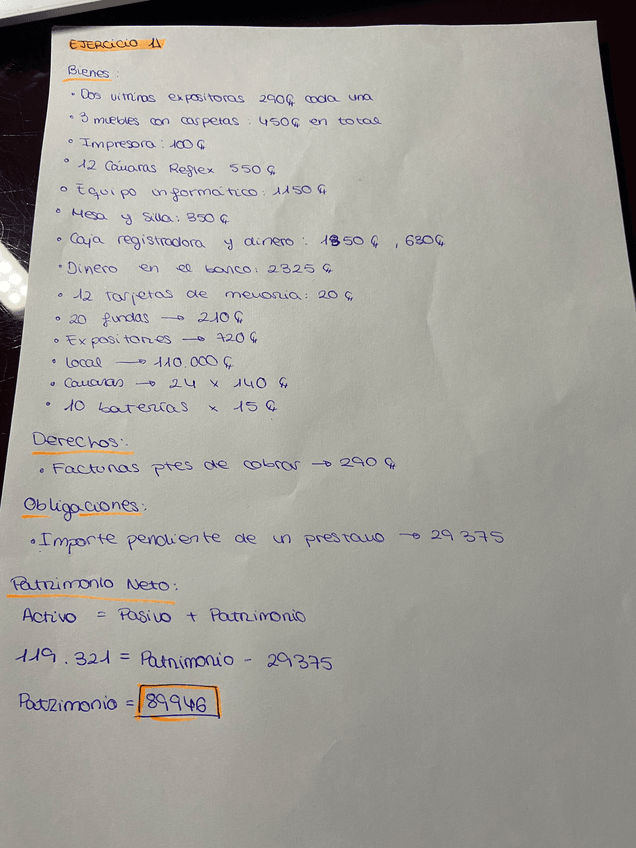 EJERCICIO 11
Bienes:
• Dos vitrinas expositoras 290€ cada una
• 3 muebles con carpetas: 450€ en total
• Impresora: 100€
• 12 Cámaras Reflex 550€
• Equipo informático: 1150€
• Mesa y silla: 350€
• Caja registradora y dinero: 1350€, 630€
• Dinero en el banco: 2325€
• 12 Tarjetas de memoria: 20€
• 20 fundas → 210€
• Expositores → 720€
• Local → 110.000€
• Cámaras → 24 x 140€
• 10 baterías x 15€
Derechos:
• Facturas ptes de cobrar → 290€
Obligaciones:
• Importe pendiente de un prestamo → 29375
Patrimonio Neto:
Activo = Pasivo + Patrimonio
119.321 = Patrimonio - 29375
Patrimonio = 89946